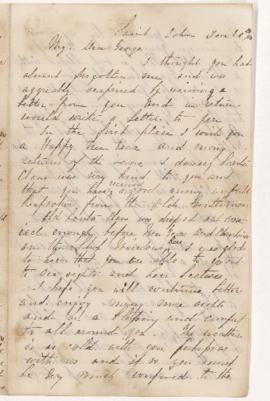 Saint John Jan 20th
My Dear George
I thought you had
almost forgotten me and was
agreeably surprised by receiving a
letter from you and in return
would write a letter to you
In the first place I wish you
a Happy New Year and many
returns of the same I
Claus was very kind to you and
that you have received a good many useful
from the old gentleman
enough before New Year and
on the I was glad
to hear that you are able to go out
to see sights and hear lectures
I hope you will continue better
and enjoy many more sights
and be a blessing and comfort
to all around you The weather
is as cold with you perhaps as
with us and if so you must
be very much confined to the